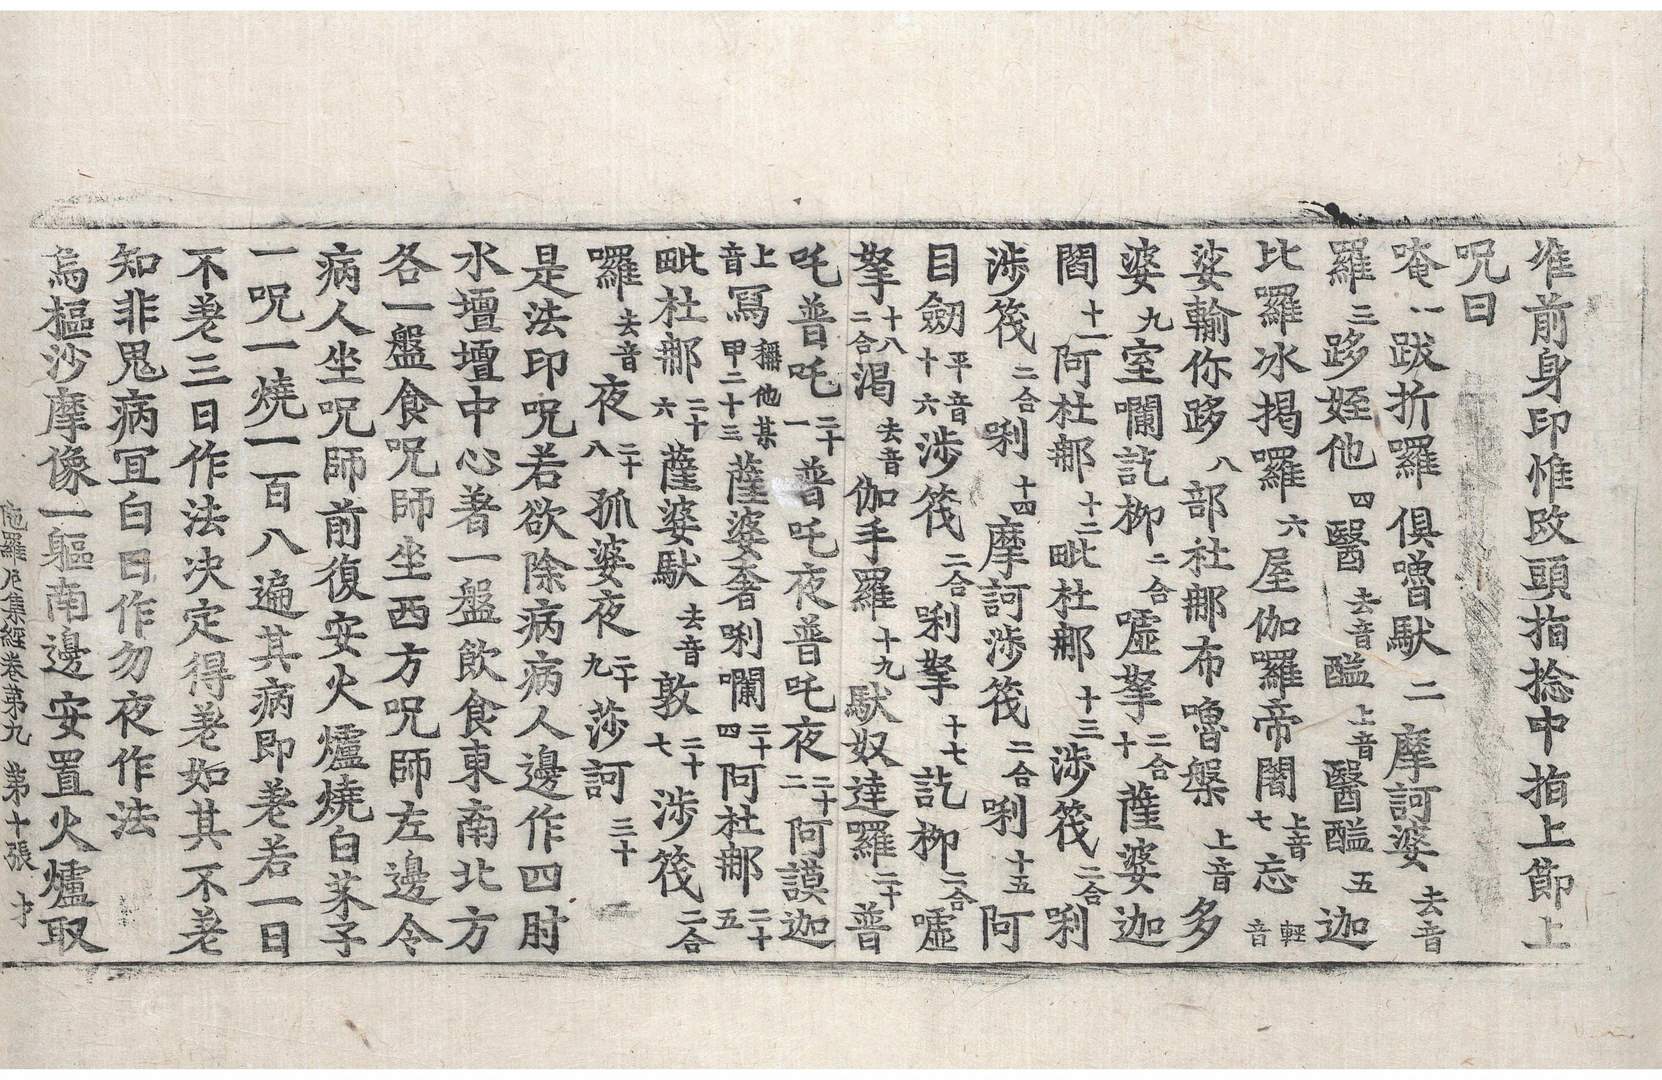 准前身印惟改頭指捻中指上節上
呪曰
唵一跋折羅俱嚕馱二摩訶婆去音
羅三跢姪他四醫去音醯上音醫醯五迦
比羅冰揭囉六屋伽囉帝闇上音七忘輕音
娑輸你跢八部社那布嚕槃上音多
婆九室㘓訖栁二合嘘拏二合十薩婆迦
闇十一阿杜那十二毗杜那十三渉筏二合唎
渉筏二合唎十四摩訶渉筏二合唎十五阿
目劒平音十六渉筏二合唎拏十七訖栁二合嘘
拏十八二合渴去音伽手羅十九馱奴達羅二十普
吒普吒二十一普吒夜普吒夜二十二阿謨迦
上音冩稱他某甲二十三薩婆奢唎㘓二十四阿杜那二十五
毗杜那二十六薩婆馱去音敦二十七渉筏二合
囉去音夜二十八孤婆夜夜二十九莎訶三十
是法印呪若欲除病病人邊作四肘
水壇壇中心著一盤飲食東南北方
各一盤食呪師坐西方呪師左邊令
病人坐呪師前復安火爐燒白芥子
一呪一燒一百八遍其病即差若一日
不差三日作法决定得差如其不差
知非鬼病冝白日作勿夜作法
烏樞沙摩像一軀南邊安置火爐取
陁羅尼集經卷第九 第十張 才